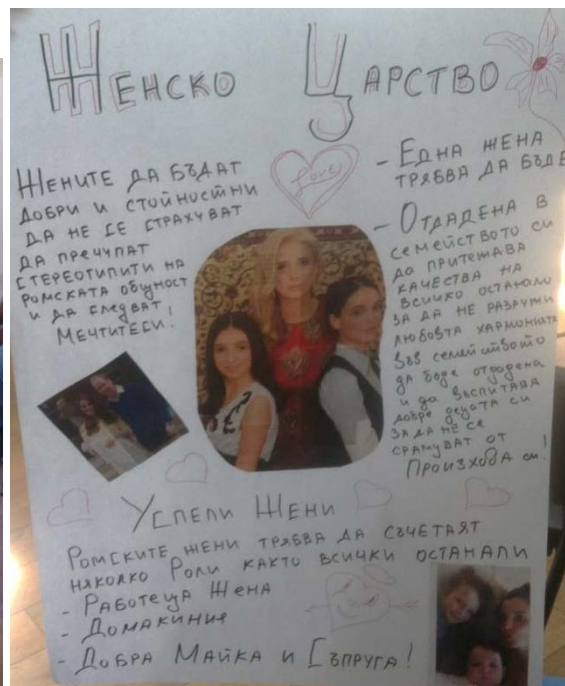 Женско Царство
Жените да бъдат
добри и стойностни
да не се страхуват
да пречупат
стереотипити на
ромската общност
и да следват
Мечтитеси!
Love
- Една жена
трябва да бъде
- Отдадена в
семейството си
да притежава
качества на
всичко останало
за да не разруши
любовта хармонията
във семейството
да бъде отдадена
и да възпитава
добре децата си
за да не се
срамуват от
Произхода си!
Успели Жени
Ромските жени трябва да съчетаят
няколко Роли както всички останали
- Работеща Жена
- Домакиния
- Добра Майка и Съпруга!